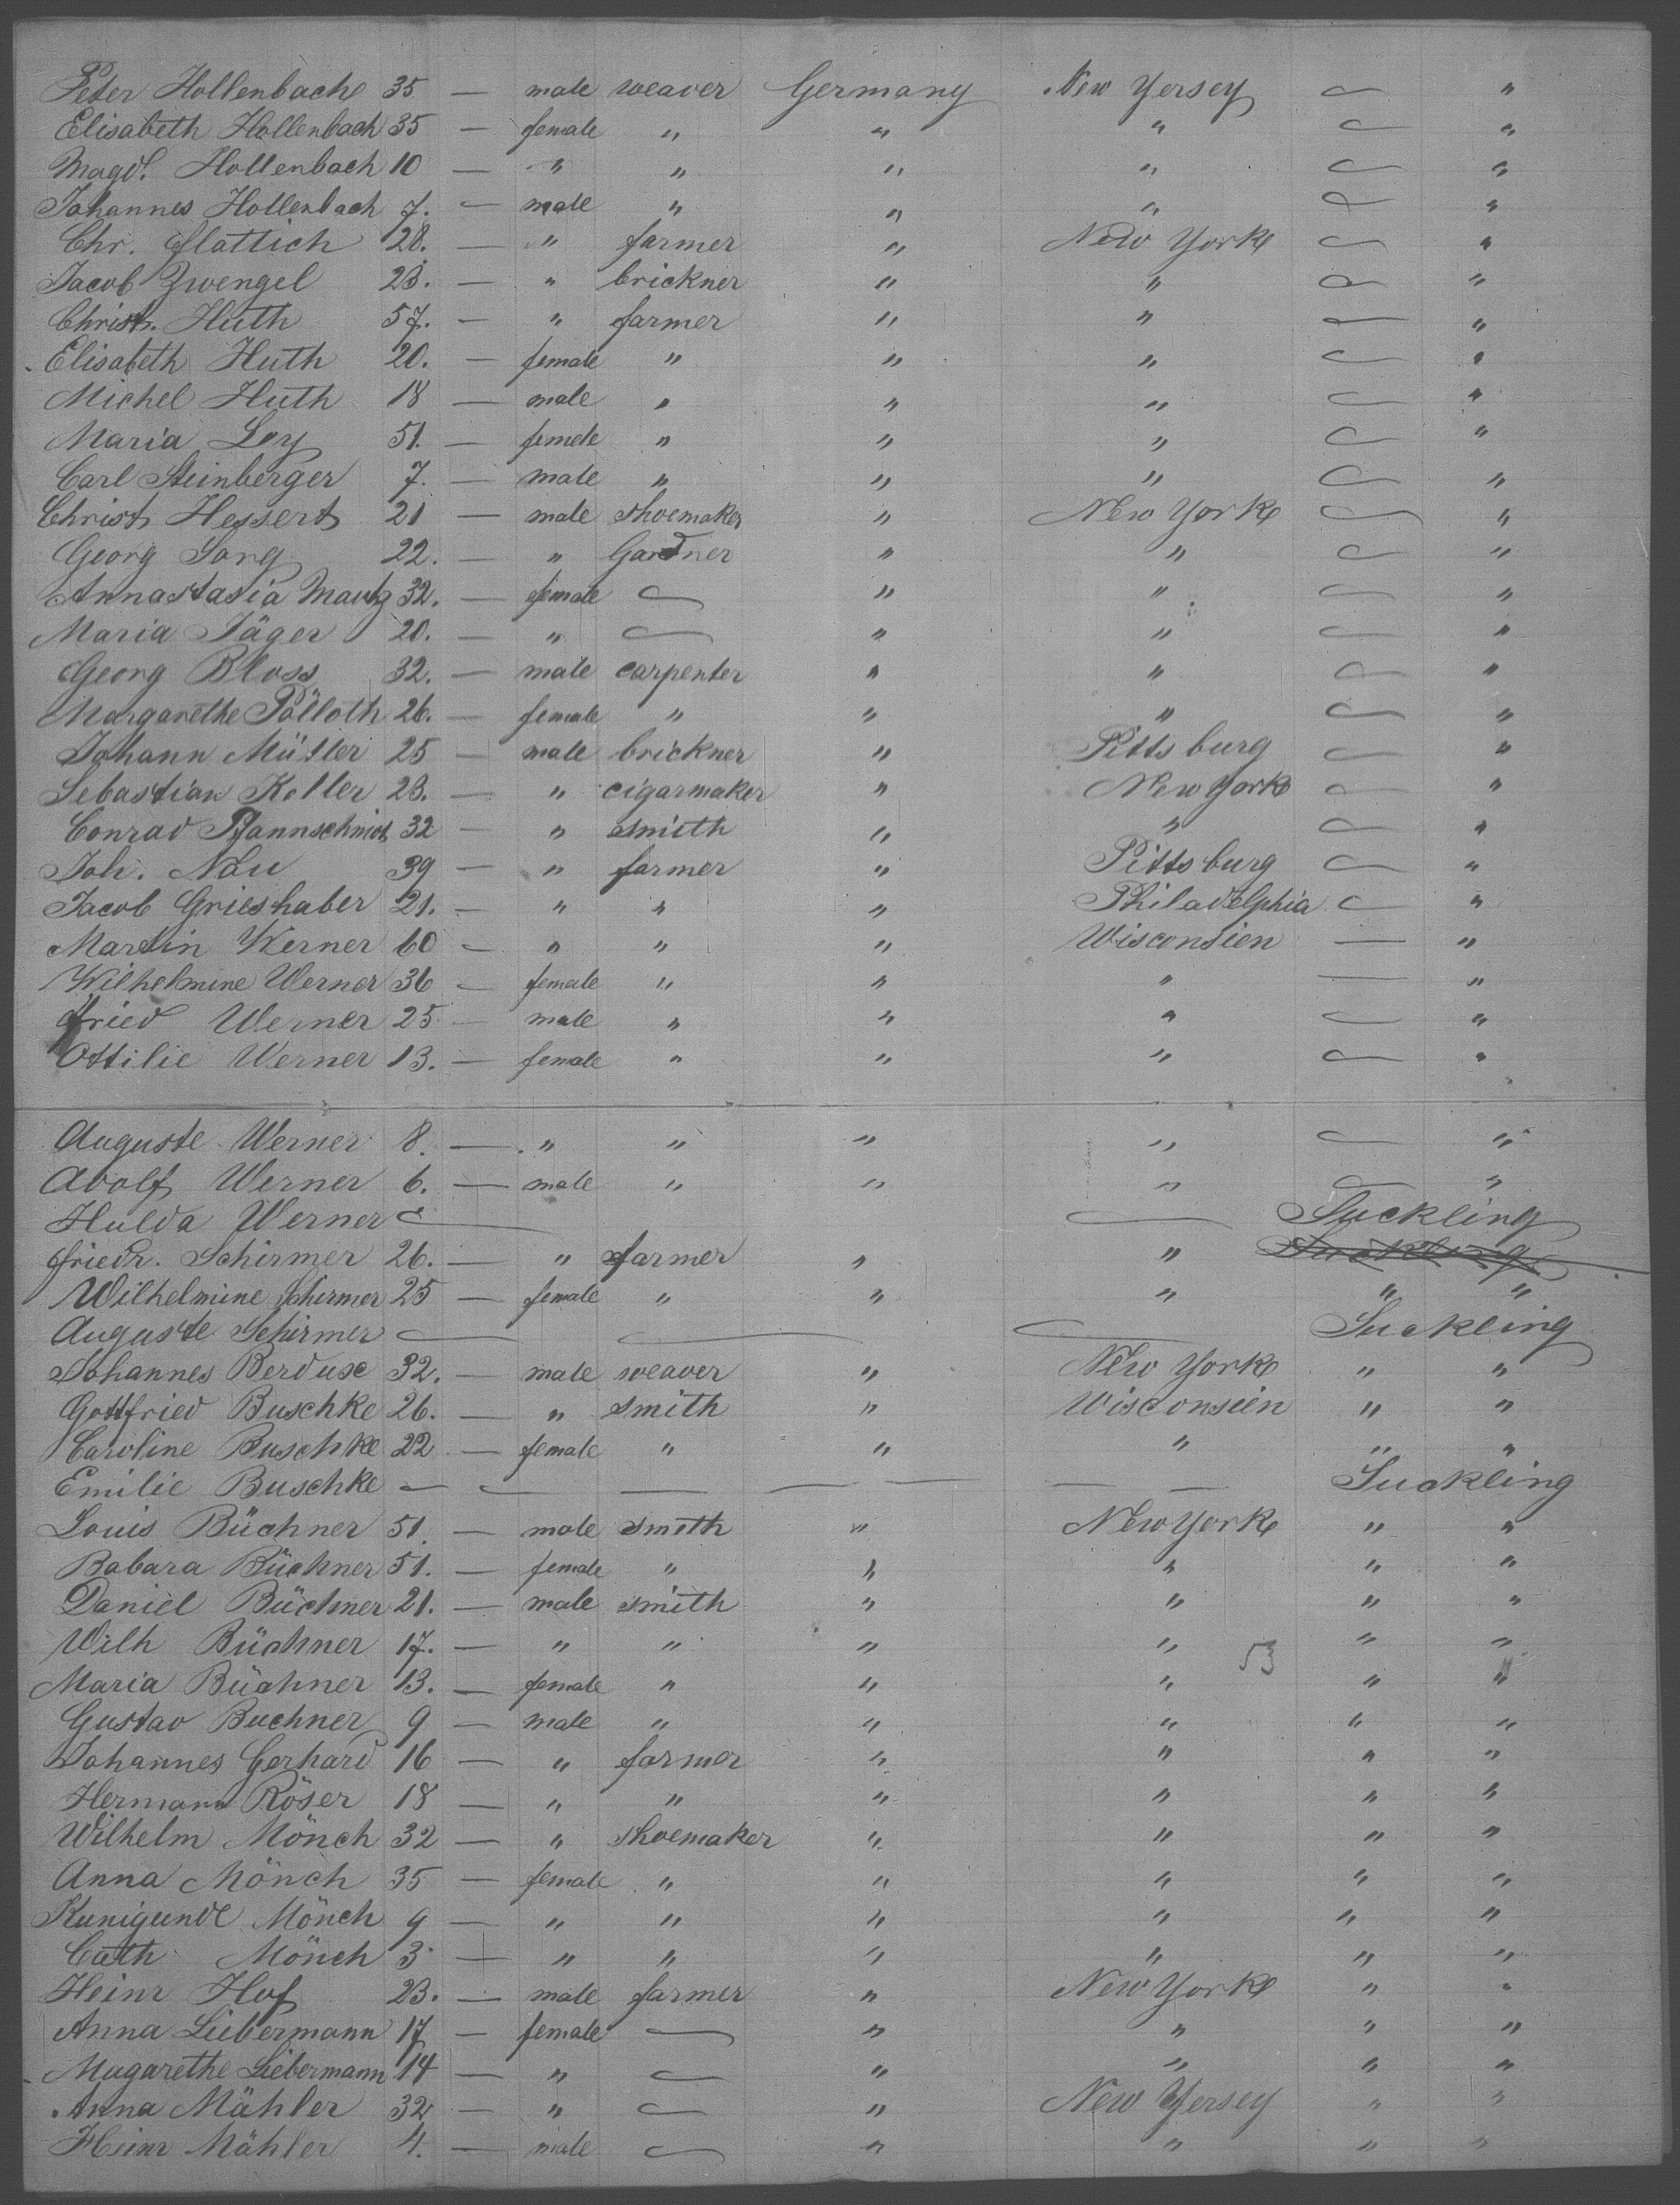 Peter Hollenbach 35 — male weaver Germany New Yersey — "
Elisabeth Hollenbach 35 — female " " " — "
Magd. Hollenbach 10 — " " " " — "
Johannes Hollenbach 7. — male " " " — "
Chr. Flattich 28. — " farmer " New York — "
Jacob Zwengel 23. — " brickner " " — "
Christ. Huth 57. — " farmer " " — "
Elisabeth Huth 20. — female " " " — "
Michel Huth 18 — male " " " — "
Maria Ley 51. — female " " " — "
Carl Steinberger 7. — male " " " — "
Christ Hessert 21 — male shoemaker " New York — "
Georg Sang 22. — " Gardner " " — "
Annastasia Mautz 32. — female — " " — "
Maria Jäger 20. — " — " " — "
Georg Bloss 32. — male carpenter " " — "
Margarethe Pölloth 26. — female " " " — "
Johann Müller 25 — male brickner " Pittsburg — "
Sebastian Koller 23. — " cigarmaker " New York — "
Conrad Pfannschmidt 32 — " smith " " — "
Joh. Nau 39 — " farmer " Pittsburg — "
Jacob Grieshaber 21. — " " " Philadelphia — "
Martin Werner 60 — " " " Wisconsien — "
Wilhelmine Werner 36 — female " " " — "
Fried Werner 25 — male " " " — "
Ottilie Werner 13. — female " " " — "
Auguste Werner 8. — " " " " — "
Adolf Werner 6. — male " " " — "
Hulda Werner — — Suckling
Friedr. Schirmer 26. — " farmer " " Suckling
Wilhelmine Schirmer 25 — female " " " " "
Auguste Schirmer — — — Suckling
Johannes Berduse 32. — male weaver " New York " "
Gottfried Buschke 26. — " smith " Wisconsien " "
Caroline Buschke 22 — female " " " " "
Emilie Buschke — — — — — — — Suckling
Louis Büchner 51. — male smith " New York " "
Babara Büchner 51. — female " " " " "
Daniel Büchner 21. — male smith " " " "
Wilh Büchner 17. — " " " " " "
53
Maria Büchner 13. — female " " " " "
Gustav Buchner 9 — male " " " " "
Johannes Gerhard 16 — " farmer " " " "
Hermann Röser 18 — " " " " " "
Wilhelm Mönch 32 — " shoemaker " " " "
Anna Mönch 35 — female " " " " "
Kunigunde Mönch 9 — " " " " " "
Cath Mönch 3 — " " " " " "
Heinr Hof 23. — male farmer " New York " "
Anna Liebermann 17 — female — " " " "
Magarethe Liebermann 14 — " — " " " "
Anna Mähler 32 — " — " New Yersey " "
Heinr Mähler 4. — male — " " " "